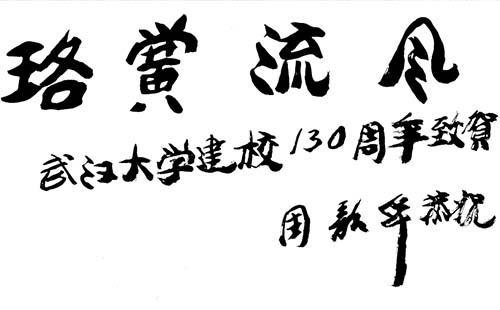 珞黉流风
武汉大学建校130周年致贺
周年恭祝